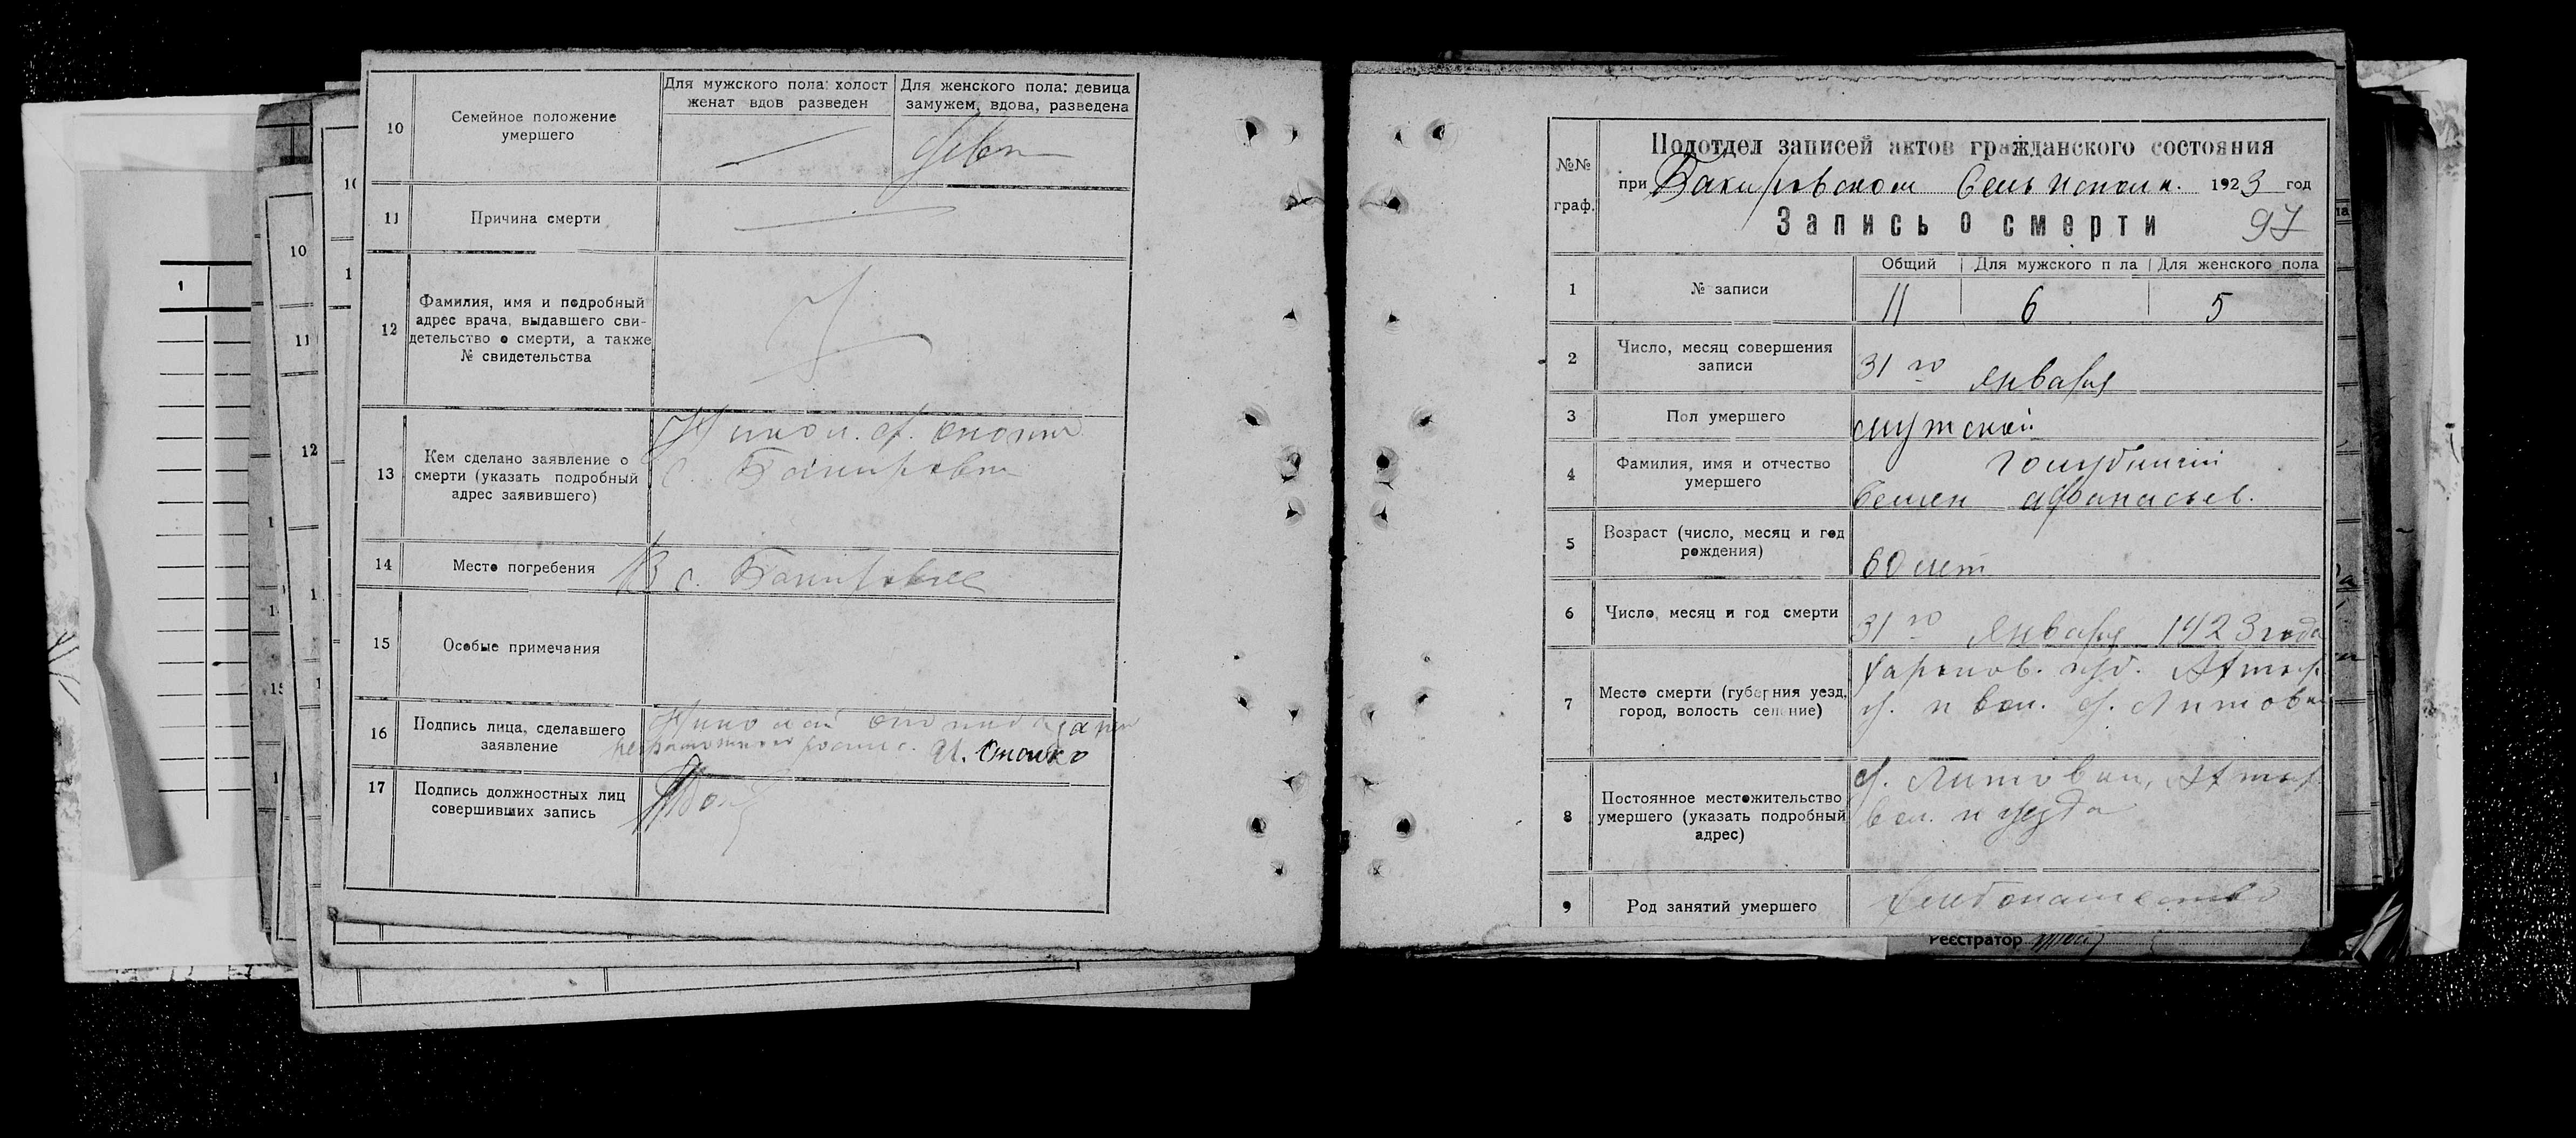 10
Семейное положение
умершего
Для мужского пола: холост
женат вдов разведен
Для женского пола: девица
замужем, вдова, разведена
11
Причина смерти
12
Фамилия, имя и подробный
адрес врача, выдавшего сви-
детельство о смерти, а также
№ свидетельства
13
Кем сделано заявление о
смерти (указать подробный
адрес заявившего)
с. Бакировка
14
Место погребения
В с. Бакировке
15
Особые примечания
16
Подпись лица, сделавшего
заявление
17
Подпись должностных лиц
совершивших запись
№№
граф.
Подотдел записей актов гражданского состояния
при Бакировском Сельисполк. 1923 год
Запись о смерти
97
1
№ записи
Общий
Для мужского п ла
Для женского пола
11
6
5
2
Число, месяц совершения
записи
31 го Января
3
Пол умершего
мужской
4
Фамилия, имя и отчество
умершего
Голубничий
Семен Афанасьев.
5
Возраст (число, месяц и год
рождения)
60 лет
6
Число, месяц и год смерти
31 го Января 1923 года
7
Место смерти (губерния уезд,
город, волость селение)
Харьков. губ. Ахтыр.
у. и вол.
8
Постоянное местожительство
умершего (указать подробный
адрес)
Ахтыр.
вол. и уезда
9
Род занятий умершего
хлебопашество
Реєстратор
10
11
12
1